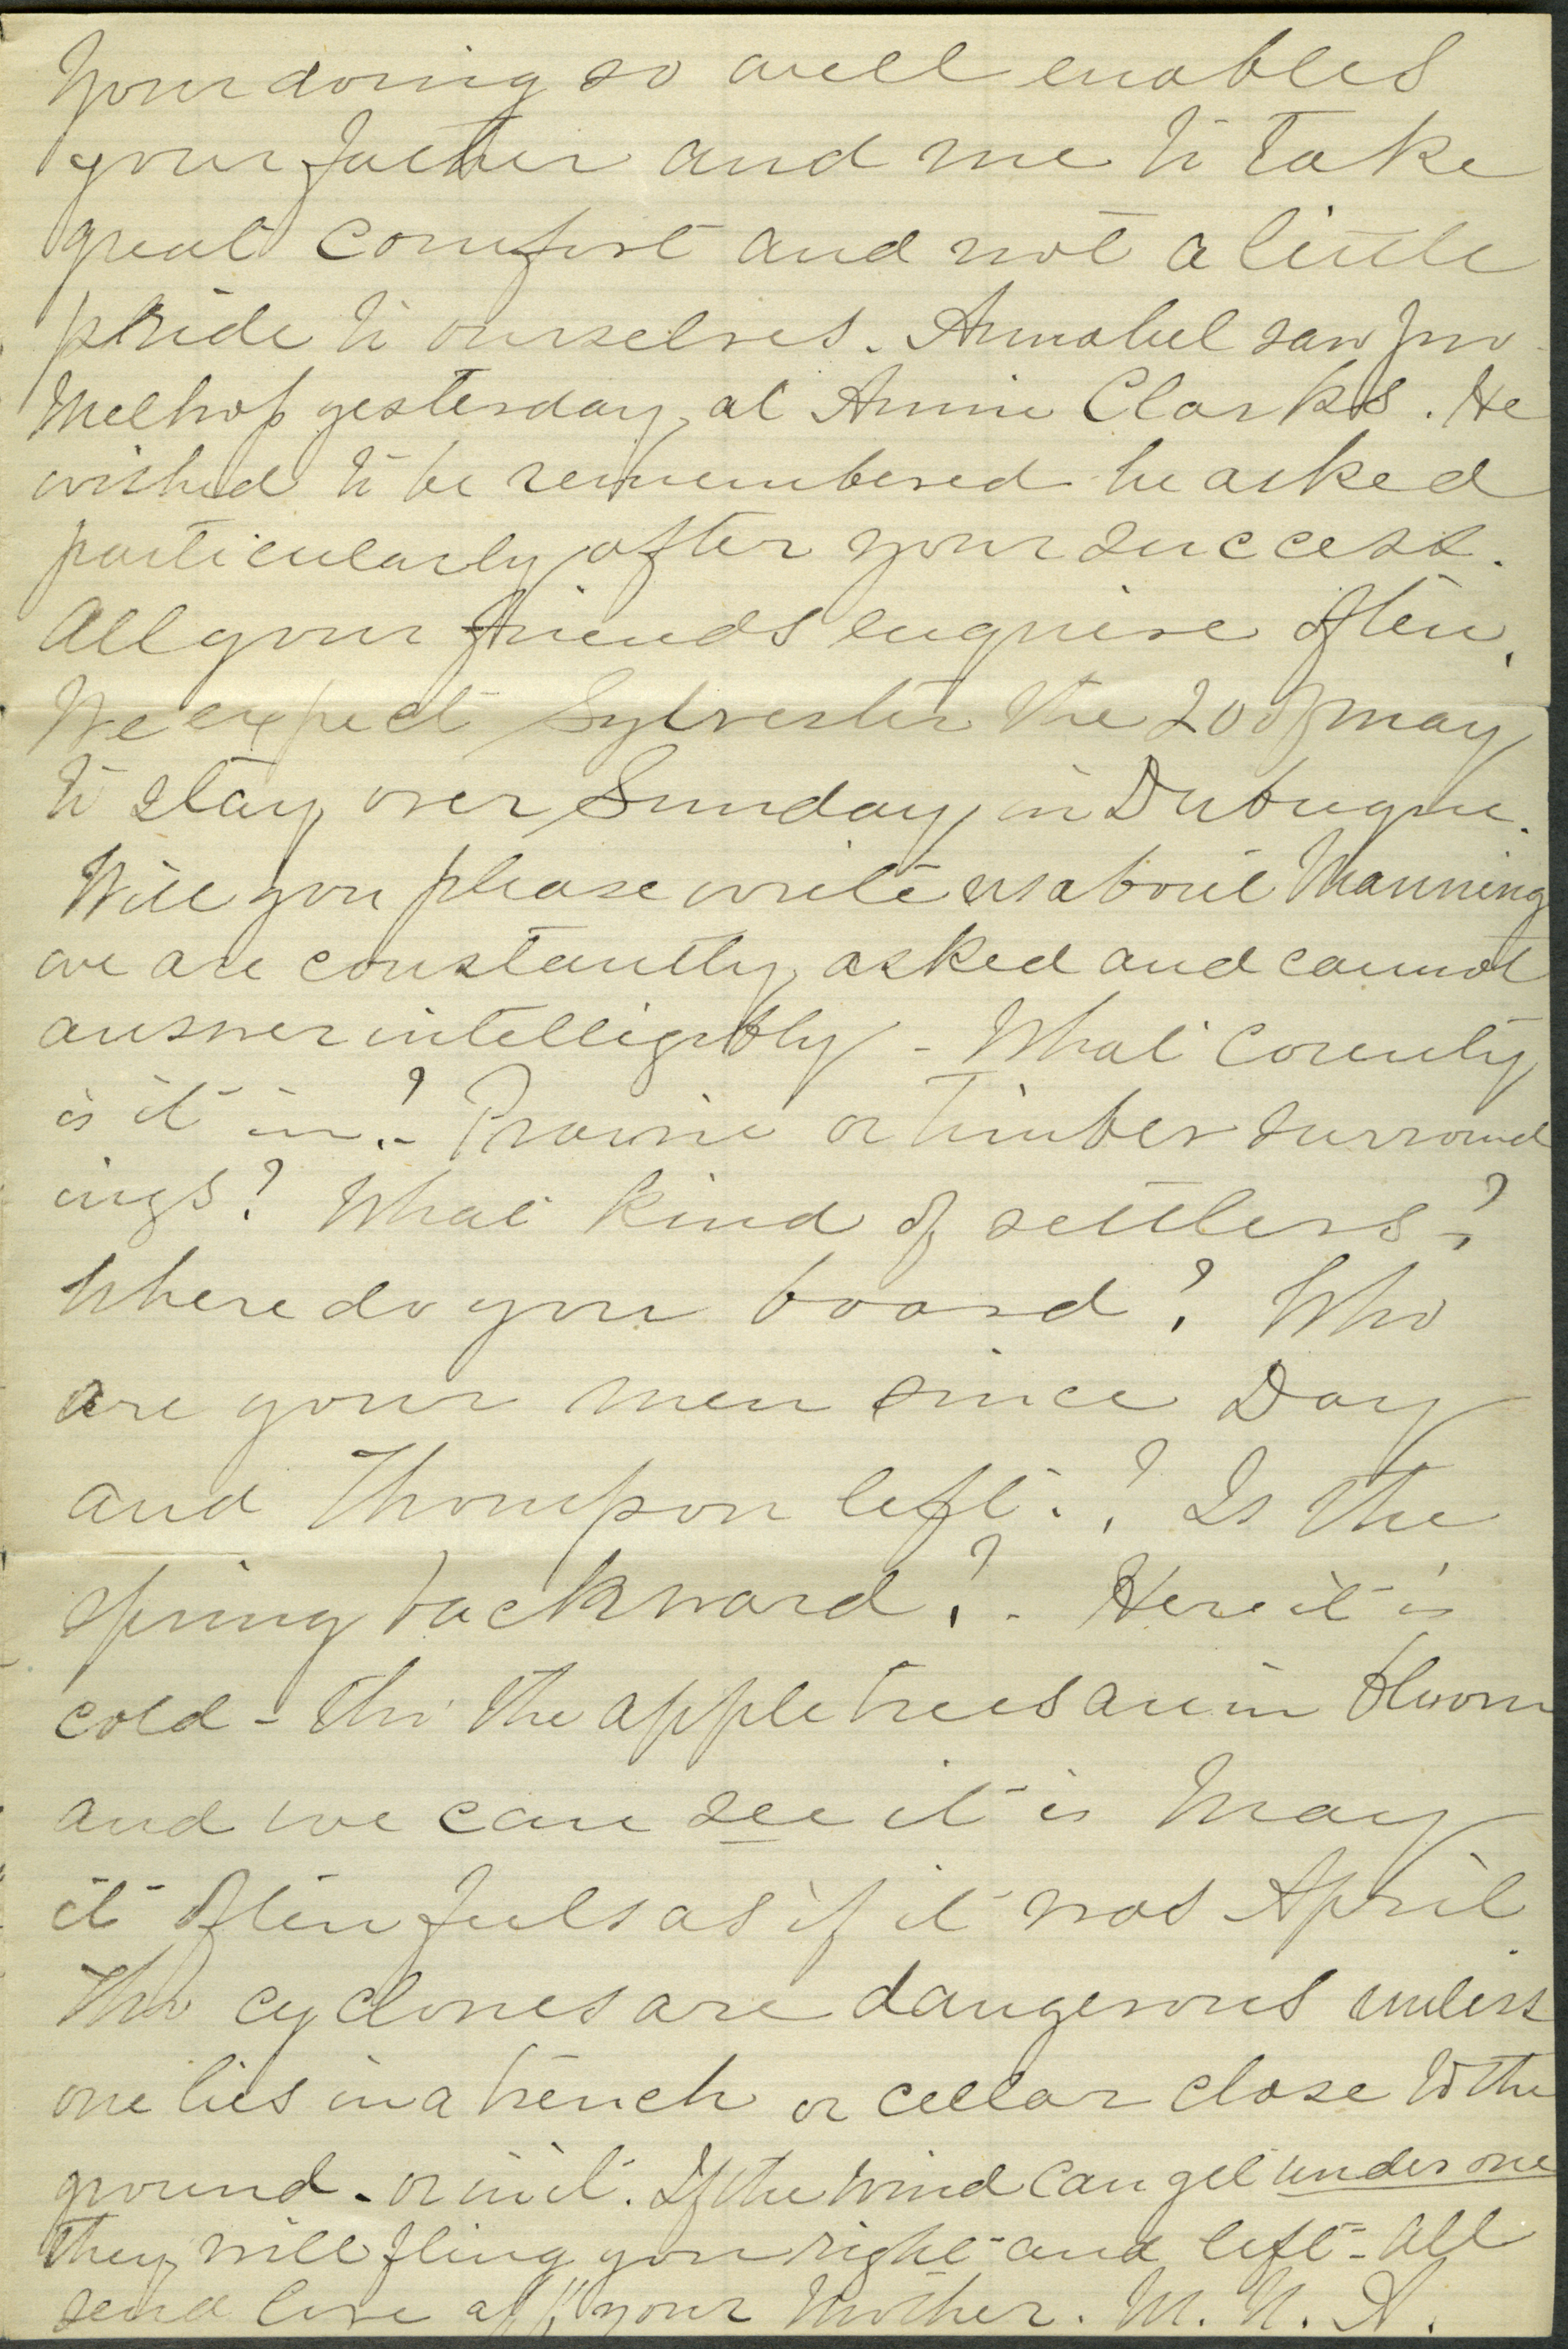 Your doing so well enables
your father and me to take
great comfort and not a little
pride to ourselves. Annabel saw Jno
Melhop yesterday, at Annie Clarks. He
wished to be remembered he asked
particularly after your success.
All your friends enquire often.
We expect Sylvester the 20 of May
to stay over Sunday in Dubuque.
Will you please write us about Manning
we are constantly asked and cannot
answer intelligibly - What County
is it in? - Prairie or timber surround
ings? What kind of settlers?
Where do you board? Who
are your men since Day
and Thompson left? Is the
spring backward? - Here it is
cold - tho' the apple trees are in bloom
and we can see it is May
it often feels as if it was April
The cyclones are dangerous unless
one lies in a trench or cellar close to the
ground - or in it. If the wind can get under one
they will fling you right and left - All
send love aff your Mother. M. N. A.